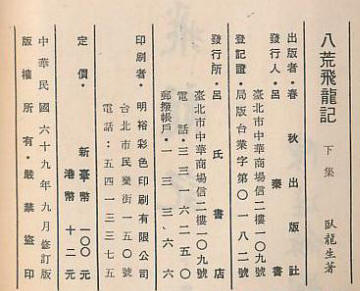 八荒飛龍記 下集 臥龍生著
出版者・春秋出版社
發行人・呂秦書
臺北市中華商場信二樓一〇九號
登記證・局版台業字第〇一八二號
發行所・呂氏書店
臺北市中華商場信二樓一〇九號
電話・三三一六二五〇
郵撥帳戶・一三三六六
印刷者・明裕彩色印刷有限公司
台北市民樂街一五〇號
電話：五四一三三七五
定價・新臺幣一〇〇元
港幣十二元
中華民國六十九年九月修訂版
版權所有・嚴禁盜印